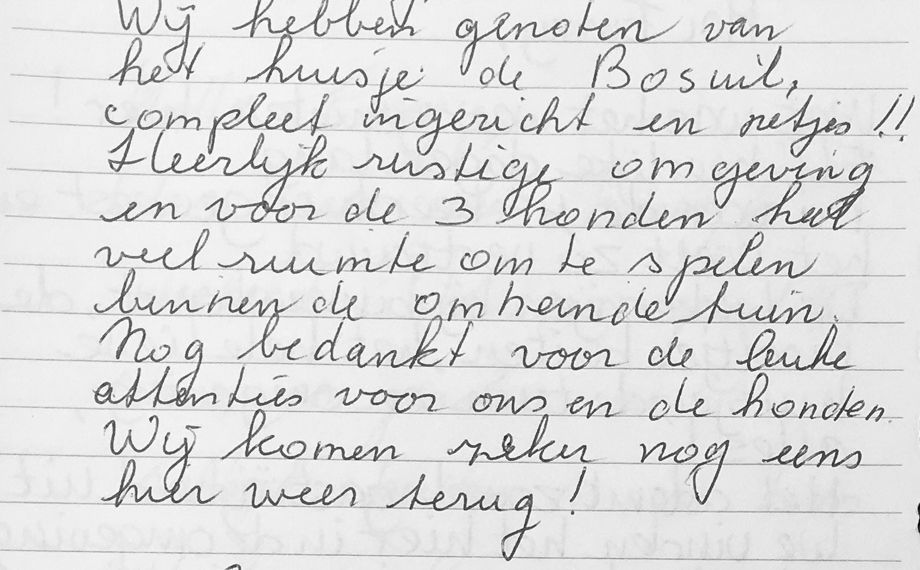 Wij hebben genoten van
het huisje de Bosuil,
compleet ingericht en netjes!!
Heerlijk rustige omgeving
en voor de 3 honden heel
veel ruimte om te spelen
binnen de omheinde tuin.
Nog bedankt voor de leuke
attenties voor ons en de honden.
Wij komen zeker nog eens
hier weer terug!